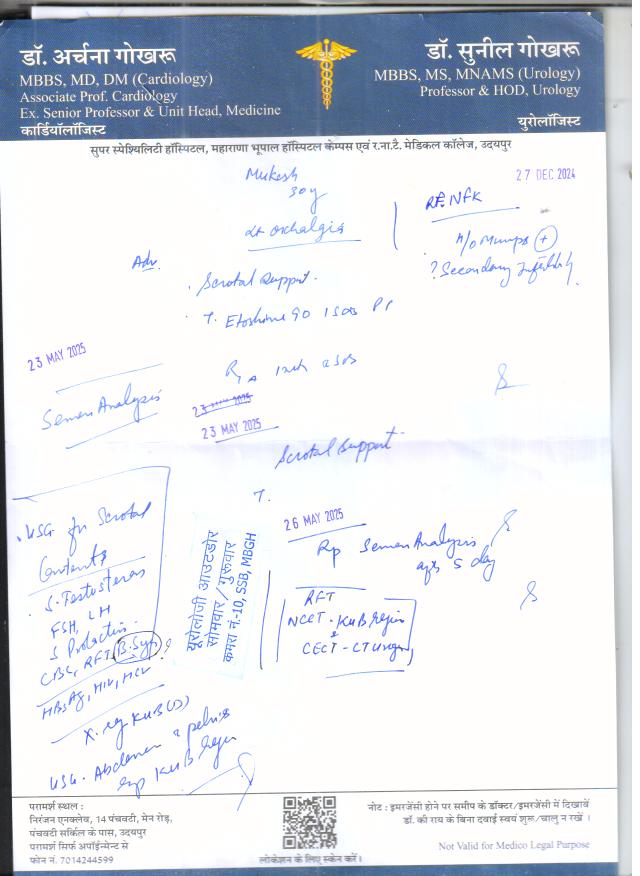 डॉ. अर्चना गोखरू
MBBS, MD, DM (Cardiology)
Associate Prof. Cardiology
Ex. Senior Professor & Unit Head, Medicine
कार्डियॉलॉजिस्ट
डॉ. सुनील गोखरू
MBBS, MS, MNAMS (Urology)
Professor & HOD, Urology
युरोलॉजिस्ट
सुपर स्पेशियलिटी हॉस्पिटल, महाराणा भूपाल हॉस्पिटल केम्पस एवं र.ना.टै. मेडिकल कॉलेज, उदयपुर
27 DEC 2024
Mukesh
30y
Lt Orchalgia
NFK
H/O Mumps (+)
? Secondary Infertility
Adv.
. Scrotal Support.
. T. Etoshine 90 1 SOS
23 MAY 2025
Semen Analysis
23 MAY 2025
23 MAY 2025
Scrotal Support
T.
26 MAY 2025
Rp Semen Analysis
after 5 day
RFT
NCCT - KUB region
&
CECT -
. USG for Scrotal
Contents
S. Testosteron
FSH, LH
S Prolactin
CBC, RFT, B.Sugar
HBsAg, HIV, HCV
X. ray KUB
USG. Abdomen & pelvis
KUB region
यूरोलॉजी आउटडोर
सोमवार / गुरूवार
कमरा नं.-10, SSB, MBGH
परामर्श स्थल :
निरंजन एनक्लेव, 14 पंचवटी, मेन रोड़,
पंचवटी सर्किल के पास, उदयपुर
परामर्श सिर्फ अपॉईन्मेन्ट से
फोन नं. 7014244599
लोकेशन के लिए स्केन करें।
नोट : इमरजेंसी होने पर समीप के डॉक्टर/इमरजेंसी में दिखावें
डॉ. की राय के बिना दवाई स्वयं शुरू/चालु न रखें ।
Not Valid for Medico Legal Purpose